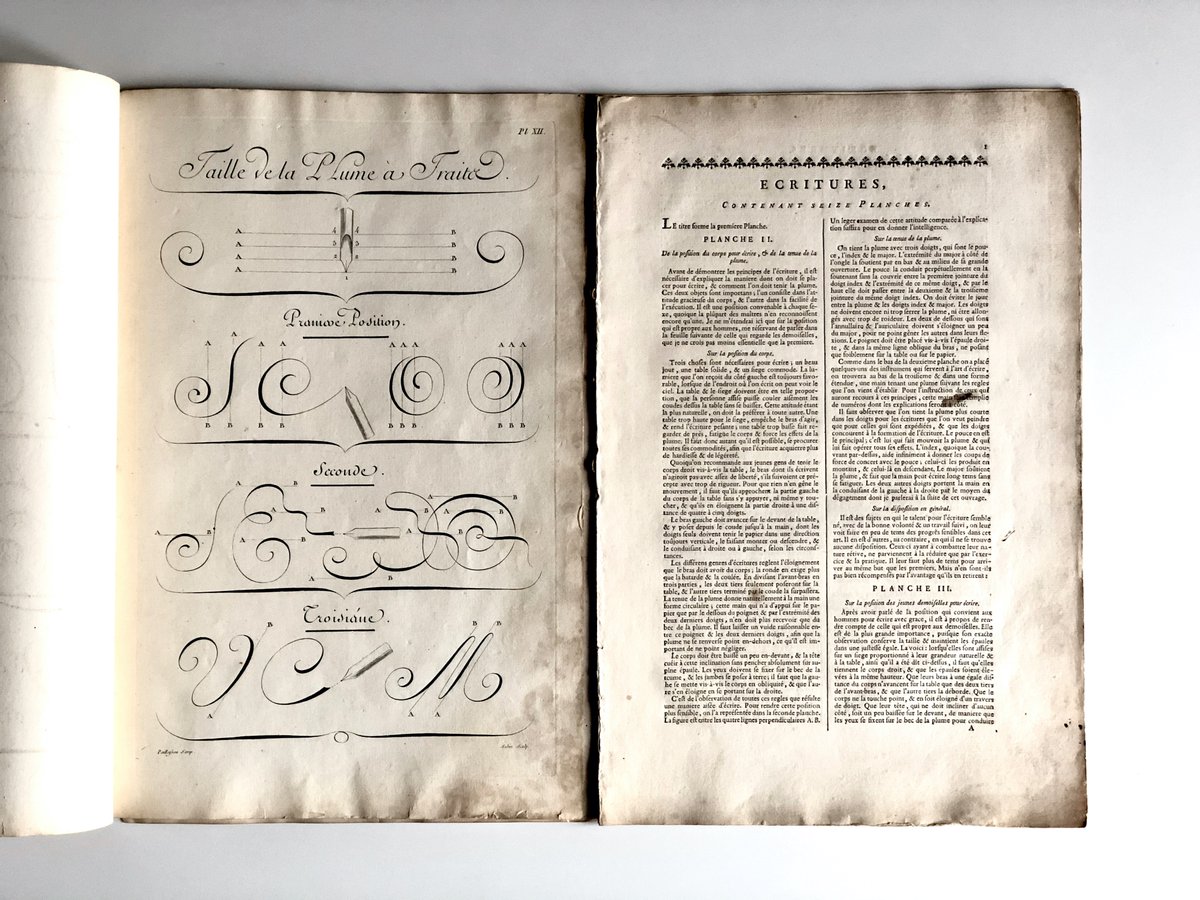 Pl. XII.
Taille de la Plume à Traits.
A 4 4 B
A 3 3 B
A 2 2 B
A B
1
Premiere Position.
A A A A A A A A A A
B B B B B B B B B B
Seconde.
A B
A B A B
A B
A B
A B
Troisiéme.
B B B
A A A
Paillasson Scrip.
Aubin Sculp.
1
ECRITURES,
CONTENANT SEIZE PLANCHES.
LE titre forme la premiere Planche.
PLANCHE II.
De la position du corps pour écrire, & de la tenue de la
plume.
Avant de démontrer les principes de l'écriture, il est
nécessaire d'expliquer la maniere dont on doit se pla-
cer pour écrire, & comment l'on doit tenir la plume.
Ces deux objets sont important; l'un consiste dans l'at-
titude gracieuse du corps, & l'autre dans la facilité de
l'exécution. Il est une position convenable à chaque se-
xe, quoique la plûpart des maîtres n'en reconnoissent
encore qu'une. Je ne m'étendrai ici que sur la position
qui est propre aux hommes, me réservant de parler dans
la feuille suivante de celle qui regarde les demoiselles,
que je ne crois pas moins essentielle que la premiere.
Sur la position du corps.
Trois choses sont nécessaires pour écrire; un beau
jour, une table solide, & un siege commode. La lu-
miere que l'on reçoit du côté gauche est toujours favo-
rable, lorsque de l'endroit où l'on écrit on peut voir le
ciel. La table & le siege doivent être en telle propor-
tion, que la personne assise puisse couler aisément les
coudes dessus la table sans se baisser. Cette attitude étant
la plus naturelle, on doit la préférer à toute autre. Une
table trop haute pour le siege, empêche le bras d'agir,
& rend l'écriture pesante; une table trop basse fait re-
garder de près, fatigue le corps & force les effets de la
plume. Il faut donc autant qu'il est possible, se procurer
toutes ses commodités, afin que l'écriture acquiere plus
de hardiesse & de légereté.
Quoiqu'on recommande aux jeunes gens de tenir le
corps droit vis-à-vis la table, le bras dont ils écrivent
n'agiroit pas avec assez de liberté, s'ils suivoient ce pré-
cepte avec trop de rigueur. Pour que rien n'en gêne le
mouvement, il faut qu'ils approchent la partie gauche
du corps de la table sans s'y appuyer, ni même y tou-
cher, & qu'ils en éloignent la partie droite à une dis-
tance de quatre à cinq doigts.
Le bras gauche doit avancer sur le devant de la table,
& y poser depuis le coude jusqu'à la main, dont les
doigts seuls doivent tenir le papier dans une direction
toujours verticale, le faisant monter ou descendre, &
le conduisant à droite ou à gauche, selon les circons-
tances.
Les différens genres d'écritures reglent l'éloignement
que le bras doit avoir du corps; la ronde en exige plus
que la batarde & la coulée. En divisant l'avant-bras en
trois parties, les deux tiers seulement poseront sur la
table, & l'autre tiers terminé par le coude la surpassera.
La tenue de la plume donne naturellement à la main une
forme circulaire; cette main qui n'a d'appui sur le pa-
pier que par le dessous du poignet & par l'extrémité des
deux derniers doigts, n'en doit plus recevoir que du
bec de la plume. Il faut laisser un vuide raisonnable en-
tre ce poignet & les deux derniers doigts, afin que la
plume ne se renverse point en-dehors, ce qu'il est im-
portant de ne point négliger.
Le corps doit être baissé un peu en-devant, & la tête
obéir à cette inclination sans pencher absolument sur au-
cune épaule. Les yeux doivent se fixer sur le bec de la
plume, & les jambes se poser à terre; il faut que la gau-
che se mette vis-à-vis le corps en obliquité, & que l'au-
tre s'en éloigne en se portant sur la droite.
C'est de l'observation de toutes ces regles que résulte
une maniere aisée d'écrire. Pour rendre cette position
plus sensible, on l'a représentée dans la seconde planche.
La figure est entre les quatre lignes perpendiculaires A. B.
Un leger examen de cette attitude comparée à l'explica-
tion suffira pour en donner l'intelligence.
Sur la tenue de la plume.
On tient la plume avec trois doigts, qui sont le pou-
ce, l'index & le major. L'extrémité du major à côté de
l'ongle la soutient par en bas & au milieu de sa grande
ouverture. Le pouce la conduit perpétuellement en la
soutenant sans la couvrir entre la premiere jointure du
doigt index & l'extrémité de ce même doigt, & par le
haut elle doit passer entre la deuxieme & la troisieme
jointure du même doigt index. On doit éviter le jour
entre la plume & les doigts index & major. Les doigts
ne doivent encore ni trop serrer la plume, ni être allon-
gés avec trop de roideur. Les deux de dessous qui sont
l'annullaire & l'auriculaire doivent s'éloigner un peu
du major, pour ne point gêner les autres dans leurs fle-
xions. Le poignet doit être placé vis-à-vis l'épaule droi-
te, & dans la même ligne oblique du bras, ne posant
que foiblement sur la table ou sur le papier.
Comme dans le bas de la deuxieme planche on a placé
quelques-uns des instrumens qui servent à l'art d'écrire,
on trouvera au bas de la troisieme & dans une forme
étendue, une main tenant une plume suivant les regles
que l'on vient d'établir. Pour l'instruction de ceux qui
auront recours à ces principes, cette main
de numéros dont les explications seront à côté.
Il faut observer que l'on tient la plume plus courte
dans les doigts pour les écritures que l'on veut peindre
que pour celles qui sont expédiées, & que les doigts
concourent à la formation de l'écriture. Le pouce en est
le principal; c'est lui qui fait mouvoir la plume & qui
lui fait opérer tous ses effets. L'index, quoique la cou-
vrant par-dessus, aide infiniment à donner les coups de
force de concert avec le pouce; celui-ci les produit en
montant, & celui-là en descendant. Le major soutient
la plume, & fait que la main peut écrire long tems sans
se fatiguer. Les deux autres doigts portent la main en
la conduisant de la gauche à la droite par le moyen du
dégagement dont je parlerai à la suite de cet ouvrage.
Sur la disposition en général.
Il est des sujets en qui le talent pour l'écriture semble
né, avec de la bonne volonté & un travail suivi, on leur
voit faire en peu de tems des progrès sensibles dans cet
art. Il en est d'autres, au contraire, en qui il ne se trouve
aucune disposition. Ceux-ci ayant à combattre leur na-
ture rétive, ne parviennent à la réduire que par l'exer-
cice & la pratique. Il leur faut plus de tems pour arri-
ver au même but que les premiers. Mais n'en sont-ils
pas bien récompensés par l'avantage qu'ils en retirent?
PLANCHE III.
Sur la position des jeunes demoiselles pour écrire.
Après avoir parlé de la position qui convient aux
hommes pour écrire avec grace, il est à propos de ren-
dre compte de celle qui est propre aux demoiselles. Elle
est de la plus grande importance, puisque son exacte
observation conserve la taille & maintient les épaules
dans une justesse égale. La voici: lorsqu'elles sont assises
sur un siege proportionné à leur grandeur naturelle &
à la table, ainsi qu'il a été dit ci-dessus, il faut qu'elles
tiennent le corps droit, & que les épaules soient éle-
vées à la même hauteur. Que leurs bras à une égale dis-
tance du corps n'avancent sur la table que des deux tiers
de l'avant-bras, & que l'autre tiers la déborde. Que le
corps ne la touche point, & en soit éloigné d'un travers
de doigt. Que leur tête, qui ne doit incliner d'aucun
côté, soit un peu baissée sur le devant, de maniere que
les yeux se fixent sur le bec de la plume pour conduire
A